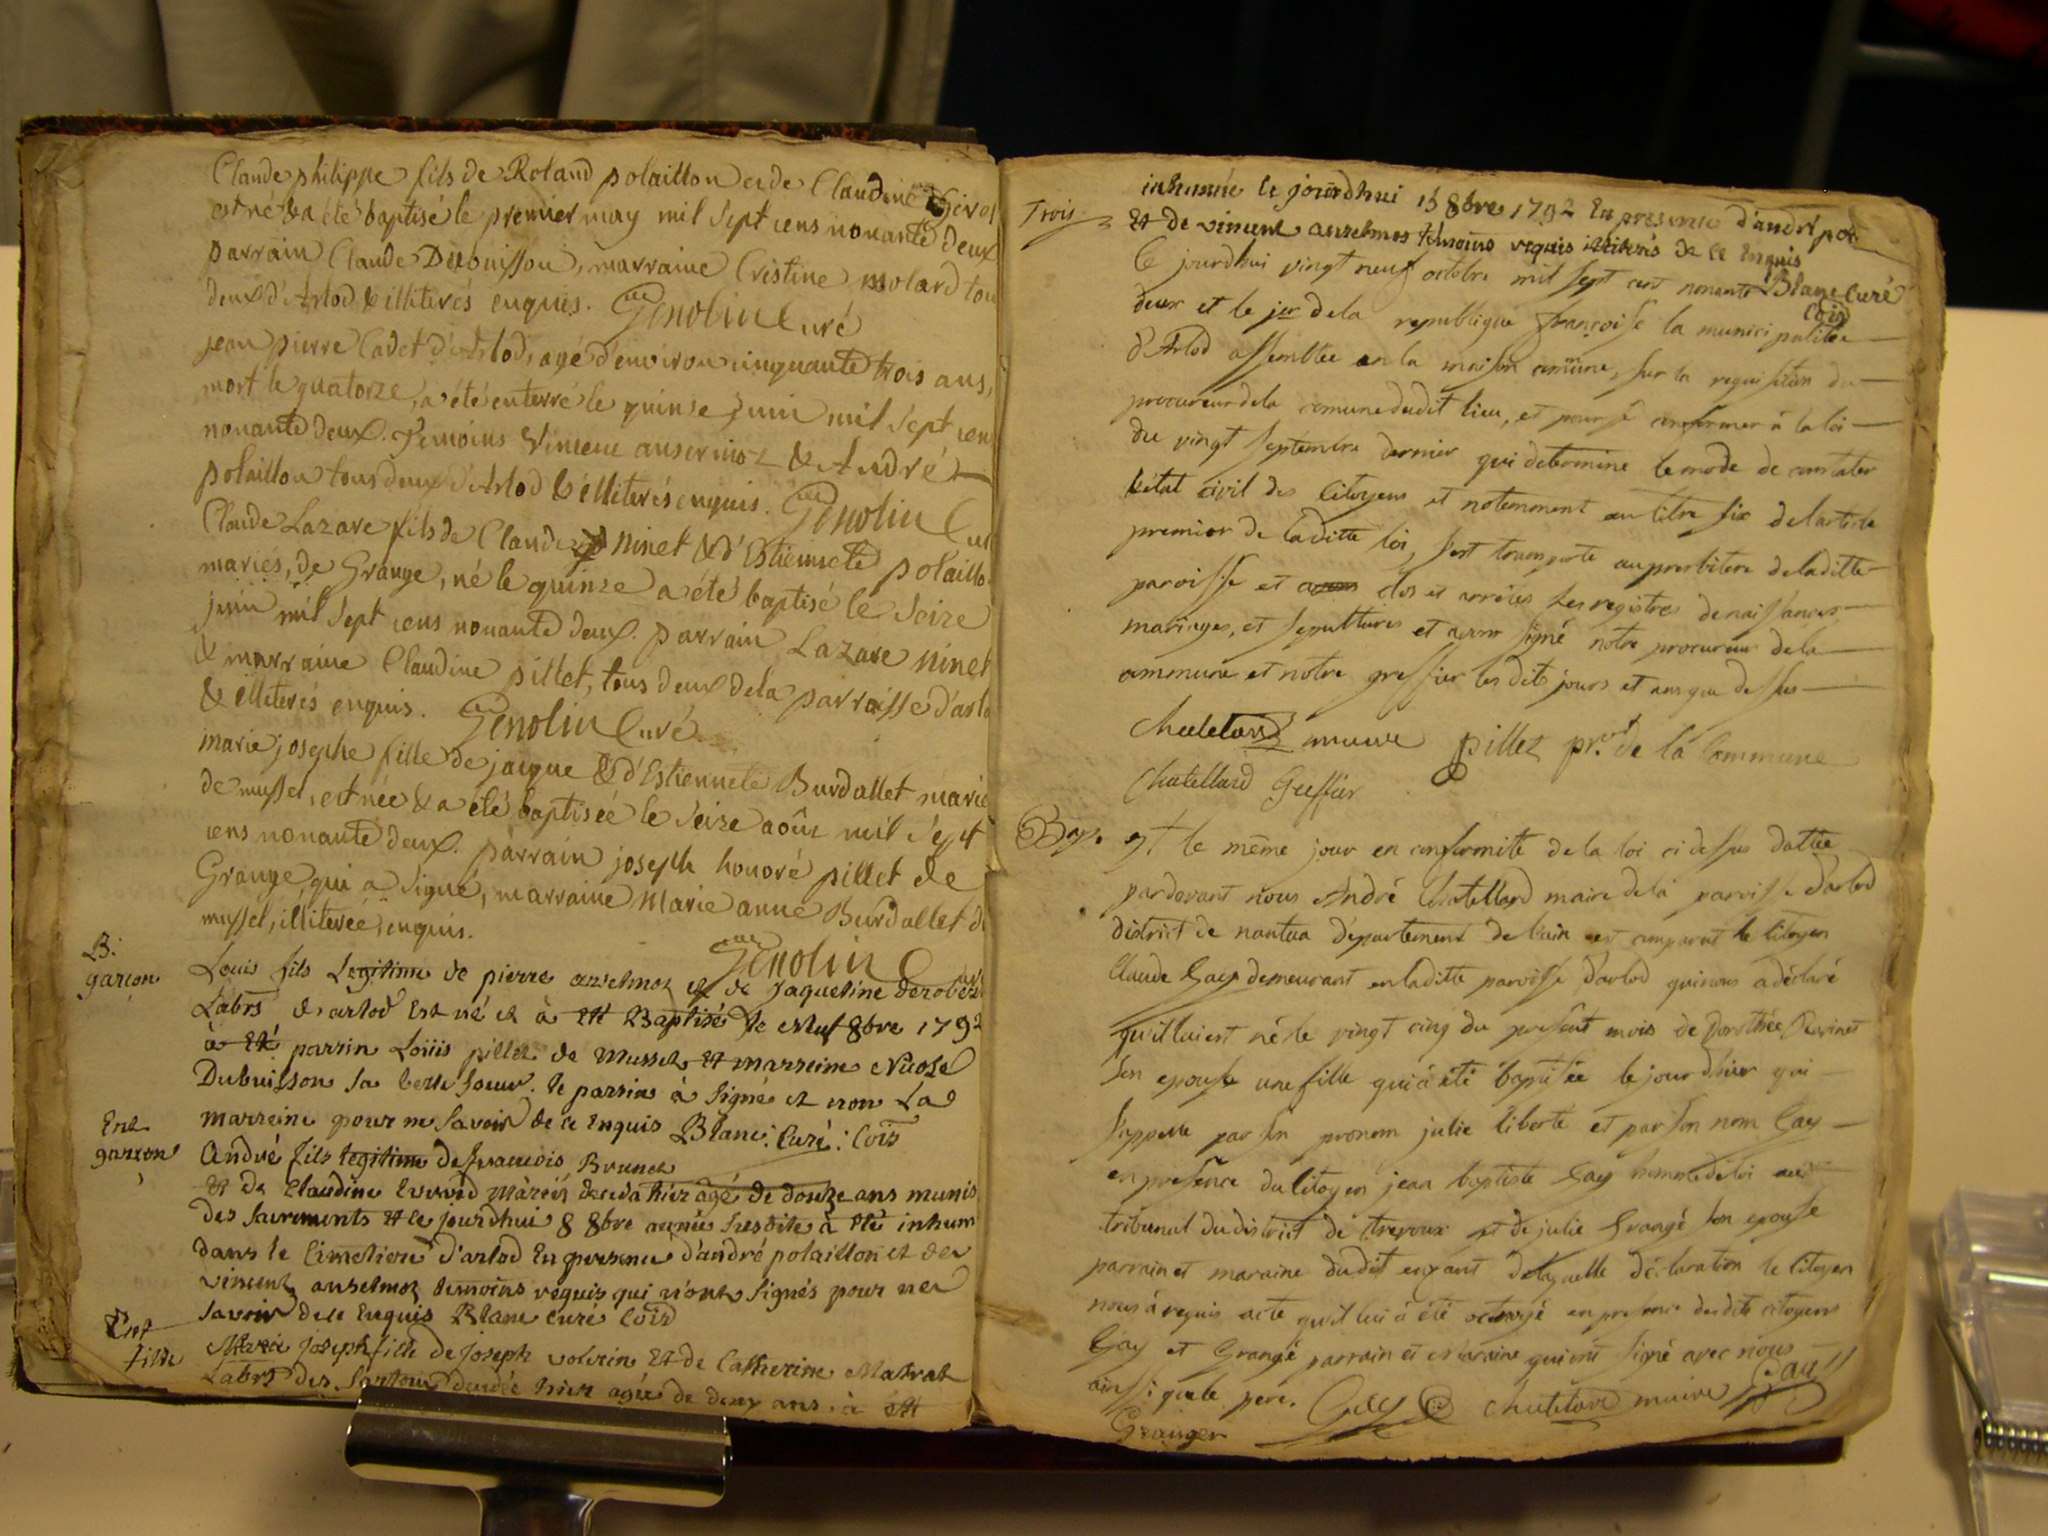 Claude philippe fils de Roland polaillon et de Claudine
est né & a été baptisé le premier may mil sept cens nonante deux
parrain Claude Dubuisson, marraine Cristine molard tou
deux d'Arlod & illiterés enquis. Genolin Curé
jean pierre Cadet d'Arlod, agé d'environ cinquante trois ans,
mort le quatorze, a été enterré le quinze juin mil sept cens
nonante deux. Temoins Vincent ansermoz & André
polaillon tous deux d'Arlod & illiterés enquis. Genolin Cur
Claude Lazare fils de Claude ninet & d'Estiennete polaillo
mariés, de Grange, né le quinze a été baptisé le seize
juin mil sept cens nonante deux. parrain Lazare ninet
& marraine Claudine pillet, tous deux de la parroisse d'arlo
& illiterés enquis. Genolin Curé
marie josephe fille de jacque & d'Estiennete Burdallet marié
de musset, est née & a été baptisée le seize août mil sept
cens nonante deux. parrain joseph honoré pillet de
Grange qui a signé, marraine Marie anne Burdallet de
musset, illiterée, enquis.
Genolin Curé
B:
garçon
Louis fils Legitime de pierre anselmoz et de Jaqueline derobert
Labrs d'arlod Est né et à été Baptisé le Neuf 8bre 1792
à été parrin Loüis pillet de Mussel et marreine Nicole
Dubuisson sa belle soeur. le parrins à signé et non La
marreine pour ne savoir de ce Enquis Blanc: Curé: Cois
Ent
garçon
André fils legitime de francois Brunet
et de Claudine decedé hier agé de douze ans munis
des sacrements et ce jourdhui 8 8bre année susdite à été inhum
dans le Cimetiere d'arlod En presence d'andré polaillon et de
vincent anselmoz temoins requis qui n'ont signés pour ne
savoir de ce Enquis Blanc curé Cois
Ent
fille
Marie joseph fille de joseph volerin Et de Catherine Matrat
Labrs des decedée hier agée de deux ans. à été
inhumée le jourdhui 15 8bre 1792 En presence d'andré pol
Trois
Et de vincent anselmos temoins requis illiterés de ce Enquis
Blanc Curé
Cois
Ce jourdhui vingt neuf octobre mil sept cent nonante
deux et le jer de la republique françoise la municipalitée
d'Arlod assemblée en la maison comune, sur la requisition du
procureur de la comune dudit lieu, et pour se conformer à la loi
du vingt septembre dernier qui determine le mode de constater
l'etat civil des Citoyens et notemment au titre six de l'article
premier de laditte loi, s'est transporté au presbitere de laditte
paroisse et clos et arrêtés les registres de naissances
mariages, et sepultures et avons signé notre procureur de la
commune et notre greffier les dits jours et ans que dessus
Chatelard maire pillet pr.r de la Commune
Chatellard Greffier
et le même jour en conformité de la loi ci dessus dattée
pardevant nous André Chatellard maire de la paroisse d'arlod
district de nantua departement de l'ain est comparut le Citoyen
Claude Gay demeurant en laditte paroisse d'arlod qui nous a déclaré
qu'il lui est né le vingt cinq du present mois de Dorothée Ravinet
son epouse une fille qui à été baptisée le jour d'hier qui
s'appelle par son pronom julie liberté et par son nom Gay
en presence du Citoyen jean baptiste Gay homme de loi au
tribunal du district de trevoux et de julie Grangé son epouse
parrain et maraine dudit enfant de laquelle déclaration le Citoyen
nous à requis acte qu'il lui à été octroyé en presence desdits citoyens
Gay et Grangé parrain et maraine qui ont signé avec nous
ainsi que le pere. Gay Chatelard maire Gay
Granger